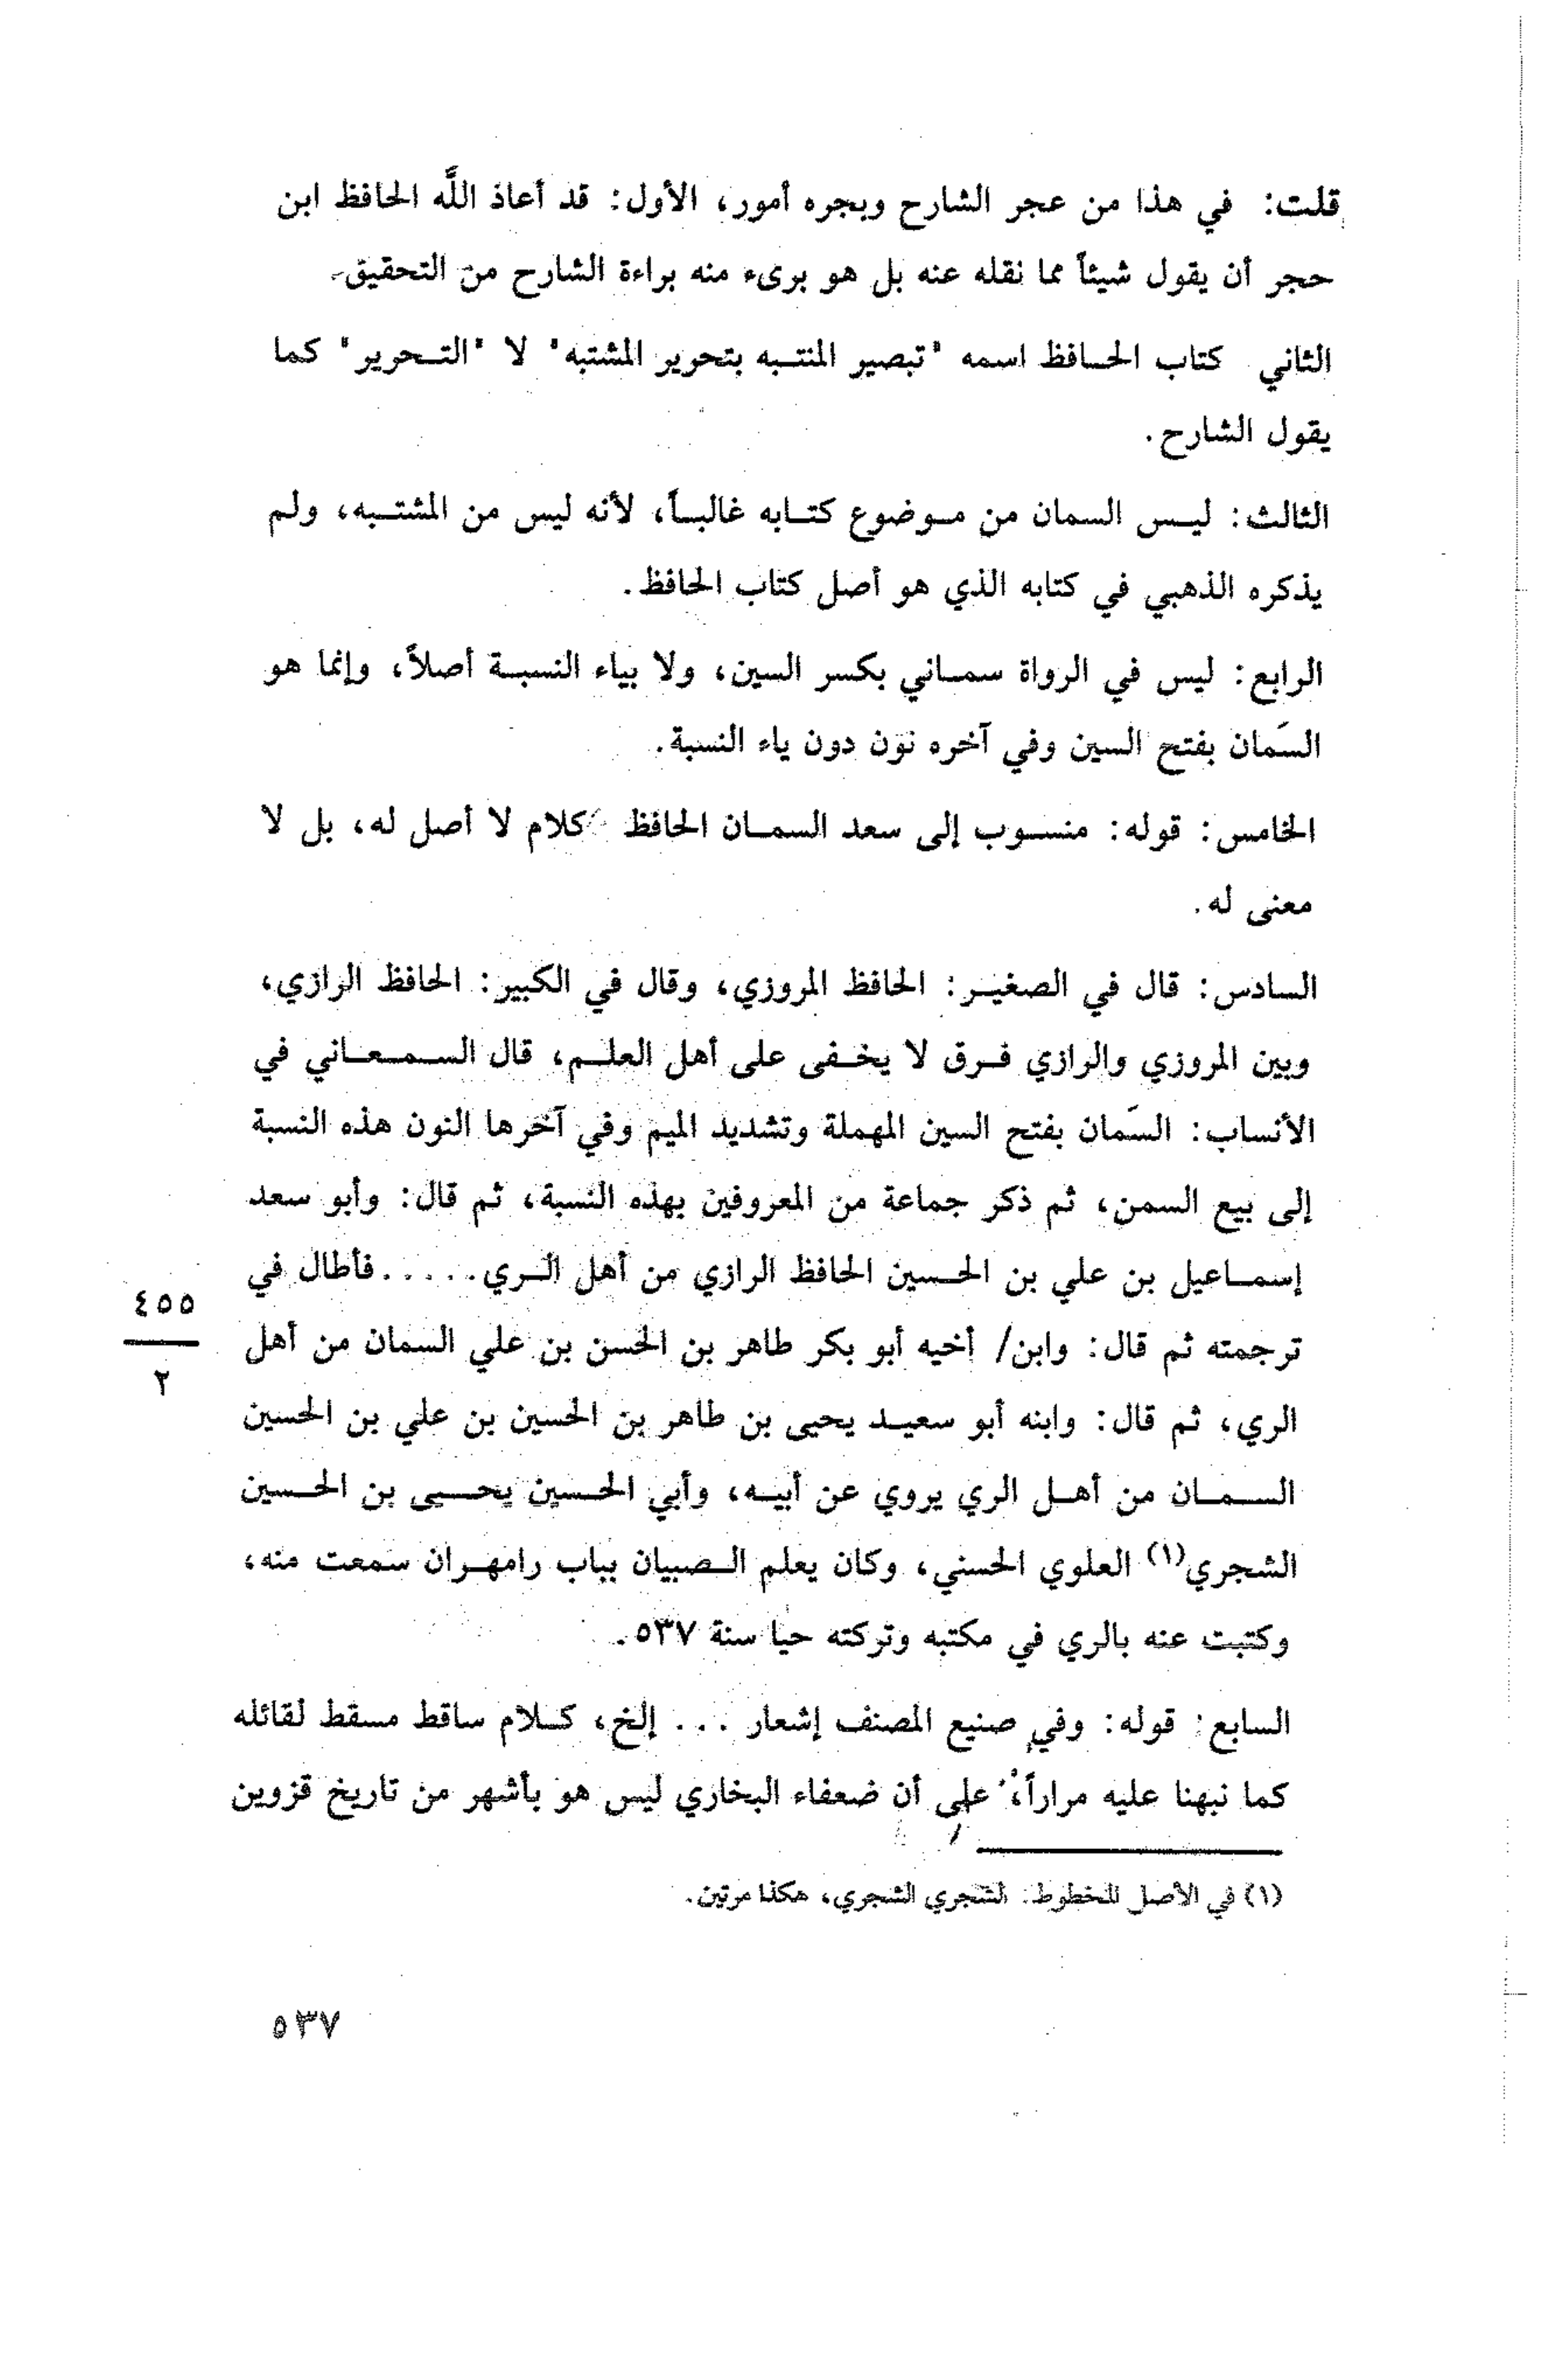 قلت: في هذا من عجر الشارح وبجره أمور، الأول: قد أعاذ اللَّه الحافظ ابن
حجر أن يقول شيئاً مما نقله عنه بل هو برىء منه براءة الشارح من التحقيق.
الثاني كتاب الحافظ اسمه "تبصير المنتبه بتحرير المشتبه" لا "التحرير" كما
يقول الشارح.
الثالث: ليس السمان من موضوع كتابه غالباً، لأنه ليس من المشتبه، ولم
يذكره الذهبي في كتابه الذي هو أصل كتاب الحافظ.
الرابع: ليس في الرواة سماني بكسر السين، ولا بياء النسبة أصلاً، وإنما هو
السَمان بفتح السين وفي آخره نون دون ياء النسبة.
الخامس: قوله: منسوب إلى سعد السمان الحافظ كلام لا أصل له، بل لا
معنى له.
السادس: قال في الصغير: الحافظ المروزي، وقال في الكبير: الحافظ الرازي،
وبين المروزي والرازي فرق لا يخفى على أهل العلم، قال السمعاني في
الأنساب: السَمان بفتح السين المهملة وتشديد الميم وفي آخرها النون هذه النسبة
إلى بيع السمن، ثم ذكر جماعة من المعروفين بهذه النسبة، ثم قال: وأبو سعد
إسماعيل بن علي بن الحسين الحافظ الرازي من أهل الري.....فأطال في
ترجمته ثم قال: وابن/ أخيه أبو بكر طاهر بن الحسن بن علي السمان من أهل
٤٥٥
٢
الري، ثم قال: وابنه أبو سعيد يحيى بن طاهر بن الحسين بن علي بن الحسين
السمان من أهل الري يروي عن أبيه، وأبي الحسين يحيى بن الحسين
الشجري(١) العلوي الحسني، وكان يعلم الصبيان بباب رامهران سمعت منه،
وكتبت عنه بالري في مكتبه وتركته حيا سنة ٥٣٧.
السابع: قوله: وفي صنيع المصنف إشعار ... إلخ، كلام ساقط مسقط لقائله
كما نبهنا عليه مراراً، على أن ضعفاء البخاري ليس هو بأشهر من تاريخ قزوين
(١) في الأصل المخطوط: الشجري الشجري، هكذا مرتين.
٥٣٧